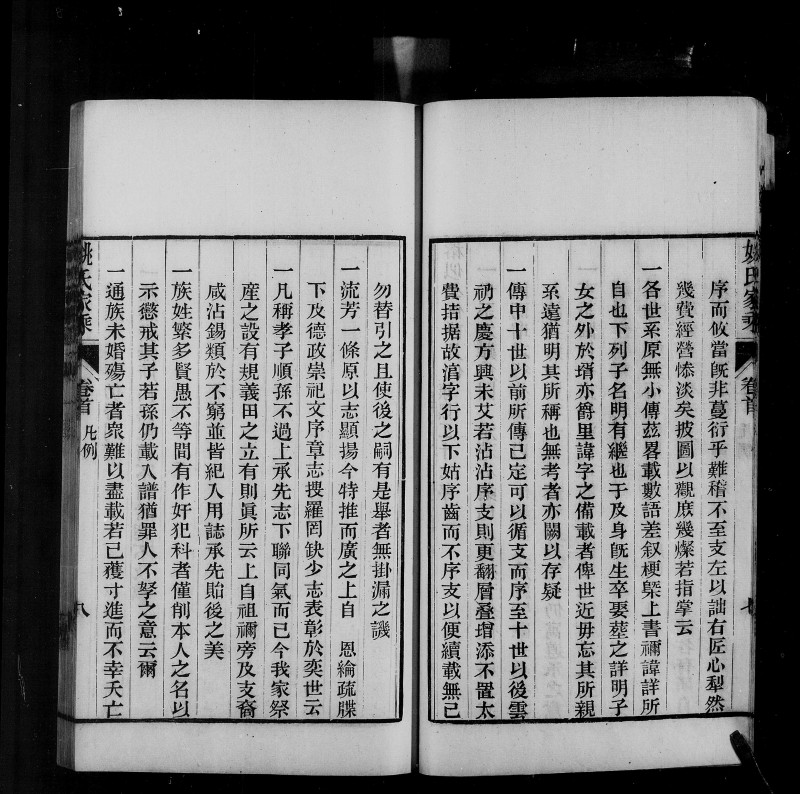 序而攸當旣非蔓衍乎難稽不至支左以詘右匠心犁然
幾費經營慘淡矣披圖以觀庶幾燦若指掌云
一各世系原無小傳茲畧載數語差叙梗槩上書禰諱詳所
自也下列子名明有繼也于及身旣生卒娶葬之詳明子
女之外於壻亦爵里諱字之備載者俾世近毋忘其所親
系遠猶明其所稱也無考者亦闕以存疑
一傳中十世以前所傳已定可以循支而序至十世以後雲
礽之慶方興未艾若沾沾序支則更翻層叠增添不置太
費拮据故滃字行以下姑序齒而不序支以便續載無已
勿替引之且使後之嗣有是舉者無掛漏之譏
一流芳一條原以志顯揚今特推而廣之上自 恩綸疏牒
下及德政崇祀文序章志搜羅罔缺少志表彰於奕世云
一凡稱孝子順孫不過上承先志下聯同氣而已今我家祭
產之設有規義田之立有則眞所云上自祖禰旁及支裔
咸沾錫類於不窮並皆紀入用誌承先貽後之美
一族姓繁多賢愚不等間有作奸犯科者僅削本人之名以
示懲戒其子若孫仍載入譜猶罪人不孥之意云爾
一通族未婚殤亡者衆難以盡載若已獲寸進而不幸夭亡
姚氏家乘
卷首
凡例
八